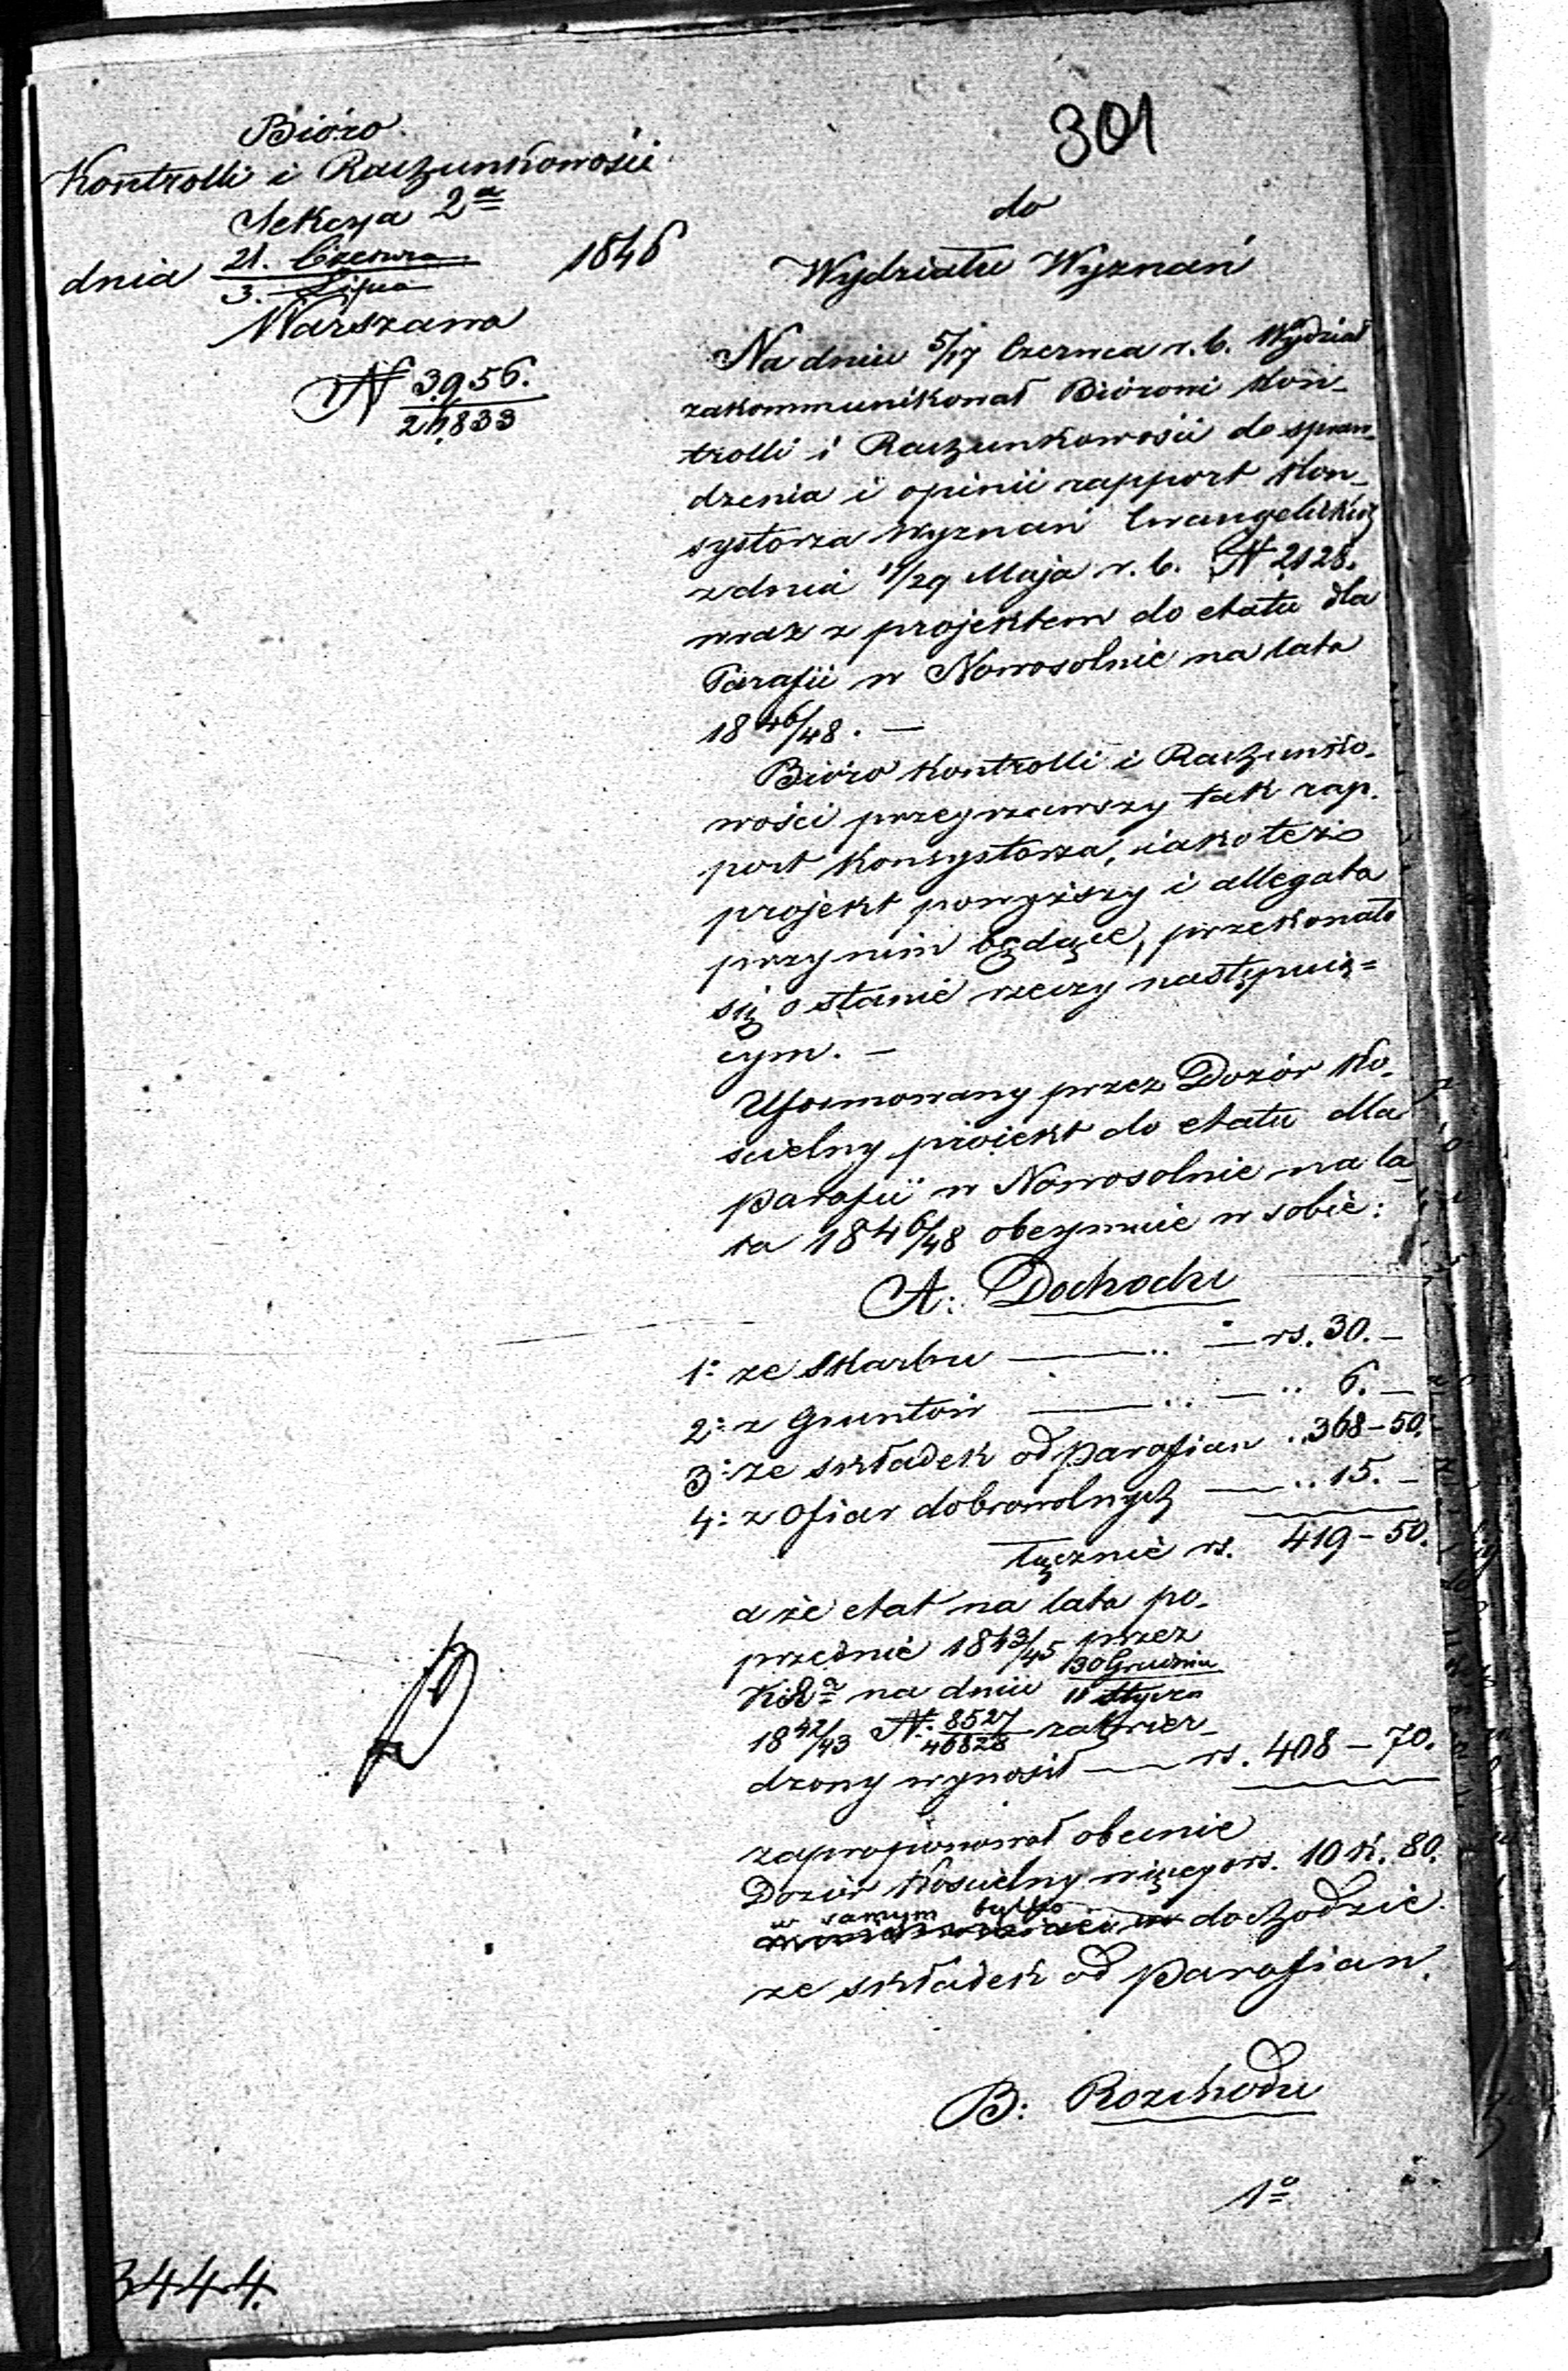 301
Bióro
Kontrolli i Rachunkowości
Sekcya 2a
dnia 21. Czerwca / 3. Lipca 1846
Warszawa
N 3956. / 21,833
do
Wydziału Wyznań
Na dniu 5/17 Czerwca r. b. Wydział
zakommunikował Bióromi Kon-
trolli i Rachunkowości do spraw-
dzenia i opinii rapport Kon-
systorza Wyznań Ewangelickich
z dnia 17/29 Maja r. b. N 2128.
wraz z projektem do etatu dla
Parafii w Nowosolnie na lata
1846/48. —
Bióro Kontrolli i Rachunko-
wości przejrzawszy tak rap-
port Konsystorza, iako też
projekt powyższy i allegata
przy nim będące, przekonało
się o stanie rzeczy następuią=
cym. —
Uformowany przez Dozór Ko-
ścielny proiekt do etatu dla
parafii w Nowosolnie na la-
ta 1846/48 obeymuie w sobie:
A: Dochodu
1: ze Skarbu — rs. 30. —
2: z Gruntów — .. 6. —
3: ze składek od Parafian .. 368 – 50.
4: z Ofiar dobrowolnych — .. 15. —
łącznie rs. 419 – 50.
a że etat na lata po-
przednie 1843/45 przez
KR na dniu 30 Grudnia / 11 Stycz.
1842/43 N. 8527 / 46828 zatwier-
dzony wynosił — rs. 408 – 70.
zaproponował obecnie
Dozór Kościelny więcej rs. 10 k. 80.
w samym tylko dochodzie
ze składek od Parafian.
B: Rozchodu
1o
3444.